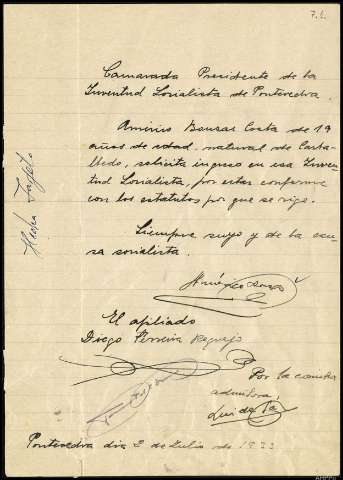 7. L.
Camarada Presidente de la
Juventud Socialista de Pontevedra.
Américo Bouzas Costa de 19
años de edad, natural de Carba-
lledo, solicita ingreso en esa Juven-
tud Socialista, por estar conforme
con los estatutos por que se rige.
Siempre suyo y de la cau-
sa socialista.
Américo Bouzas
El afiliado
Diego Ferreira
Por la comision
admisora,
Pontevedra dia 2 de Julio de 1933
Hecha